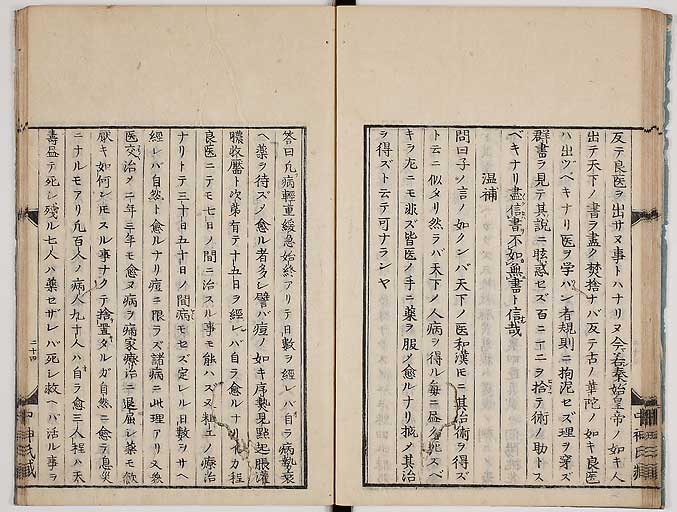 反テ良医ヲ出サヌ事トハナリヌ今若秦始皇帝ノ如キ人
出テ天下ノ書ヲ盡ク焚捨ナバ反テ古ノ華陀ノ如キ良医
ハ出ツベキナリ医ヲ学バン者規則ニ拘泥セズ理ヲ窮ズ
群書ヲ見テ其説ニ眩惑セズ百ニ一二ヲ捨テ術ノ助トス
ベキナリ盡信書不如無書ト信哉
温補
問曰子ノ言ノ如クンバ天下ノ医和漢モニ其治術ヲ得ズ
ト云ニ似タリ然ラバ天下ノ人病ヲ得ル毎ニ盡ク死スベ
キヲ左ニモ非ズ皆医ノ手ニ薬ヲ服メ愈ルナリ概メ其治
ヲ得ズト云テ可ナランヤ
答曰凡病輕重緩急始終アリテ日數ヲ經レバ自ラ病勢衰
ヘ薬ヲ待ズメ愈ル者多シ譬バ痘ノ如キ序熱見點起脹灌
膿收靨ト次第有テ十五日ヲ經レバ自ラ愈ルナリ
良医ニテモ七日ノ間ニ治スル事モ能ハズ又粗工ノ療治
ナリトテ三十日五十日ノ間病モセズ定レル日數ヲサヘ
經レバ自然ト愈ルナリ痘ニ限ラズ諸病ニ此理アリ又数
医交治メ二年三年モ愈ヌ病ヲ病家療治ニ退屈シ薬モ飲
厭キ如何シモスル事ナクテ捨置タルガ自然ニ愈テ息災
ニナルモアリ凡百人ノ病人九十人ハ自ラ愈三人程ハ天
壽盡テ死シ残ル七人ハ薬セザレバ死シ救ヘバ活ル事ヲ
二十四
中神氏蔵